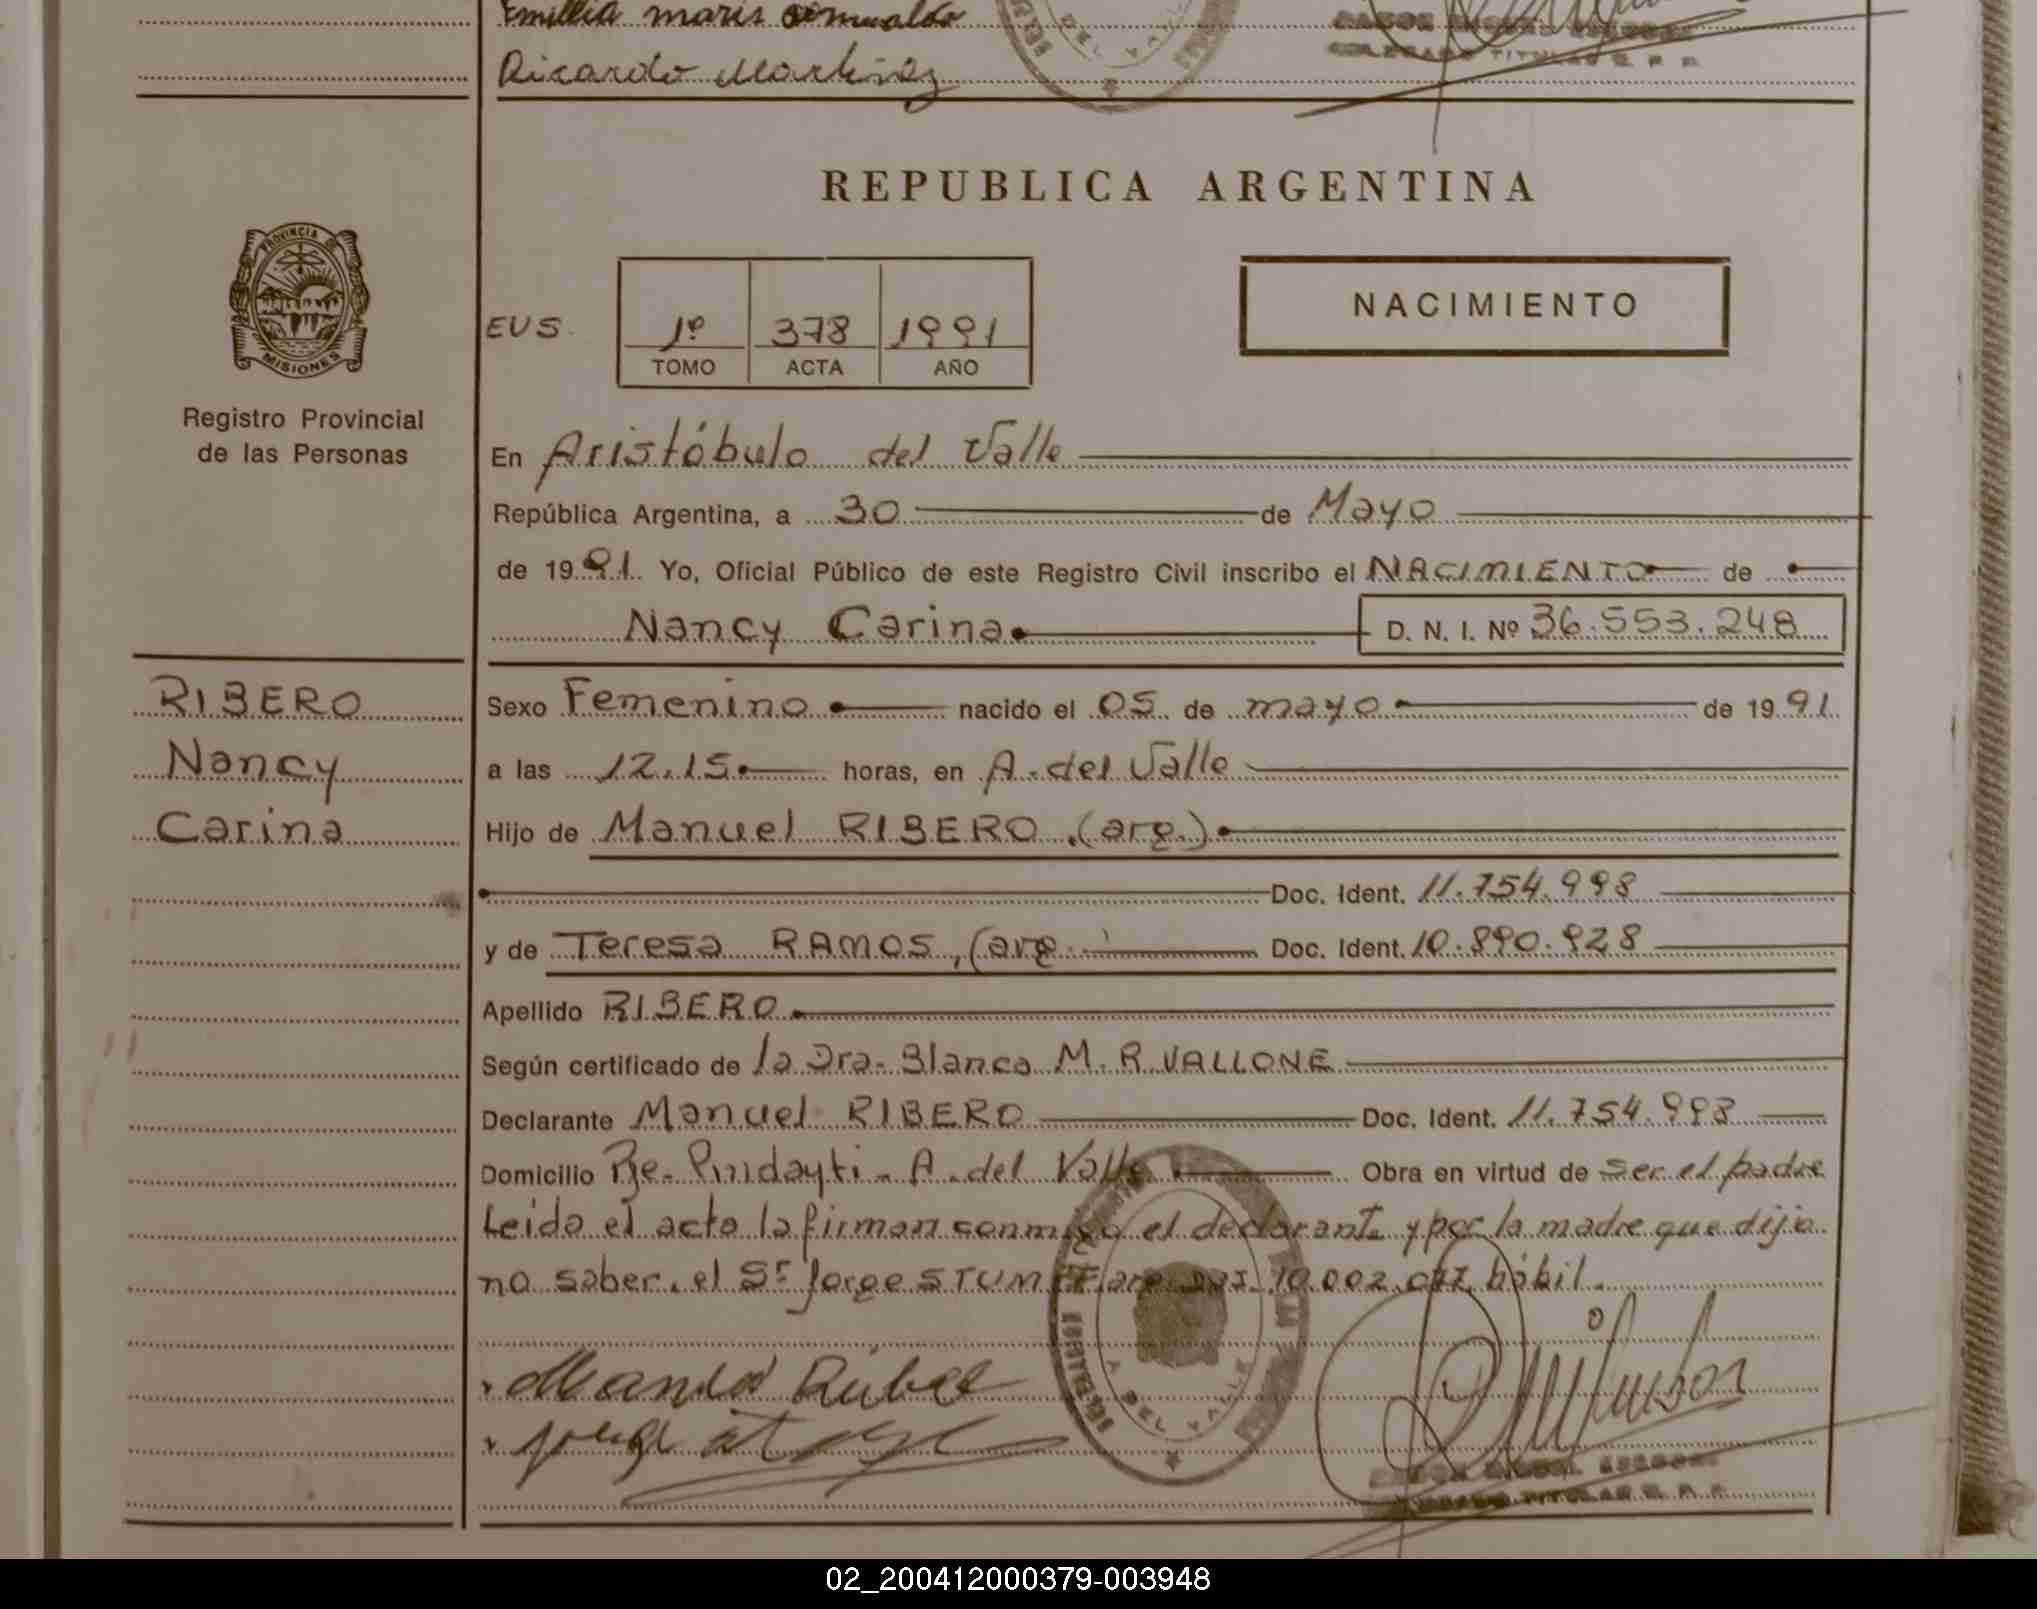 Emillia maris
Ricardo Martinez
REPUBLICA ARGENTINA
PROVINCIA DE
MISIONES
Registro Provincial
de las Personas
EUS.
1º 378 1991
TOMO ACTA AÑO
NACIMIENTO
En Aristóbulo del Valle
República Argentina, a 30 de Mayo
de 1991. Yo, Oficial Público de este Registro Civil inscribo el NACIMIENTO de
Nancy Carina D. N. I. Nº 36.553.248
RIBERO
Nancy
Carina
Sexo Femenino nacido el 05 de mayo de 1991
a las 12.15 horas, en A. del Valle
Hijo de Manuel RIBERO,(arg.)
Doc. Ident. 11.754.998
y de Teresa RAMOS,(arg Doc. Ident. 10.890.928
Apellido RIBERO
Según certificado de la Dra. Blanca M. R. VALLONE
Declarante Manuel RIBERO Doc. Ident. 11.754.998
Domicilio Pje. Pindayti - A. del Valle Obra en virtud de ser el padre
Leida el acta la firman conmigo el declarante y por la madre que dijo
no saber, el Sr Jorge 10.002.077 hábil.
A DEL VALLE
02_200412000379-003948